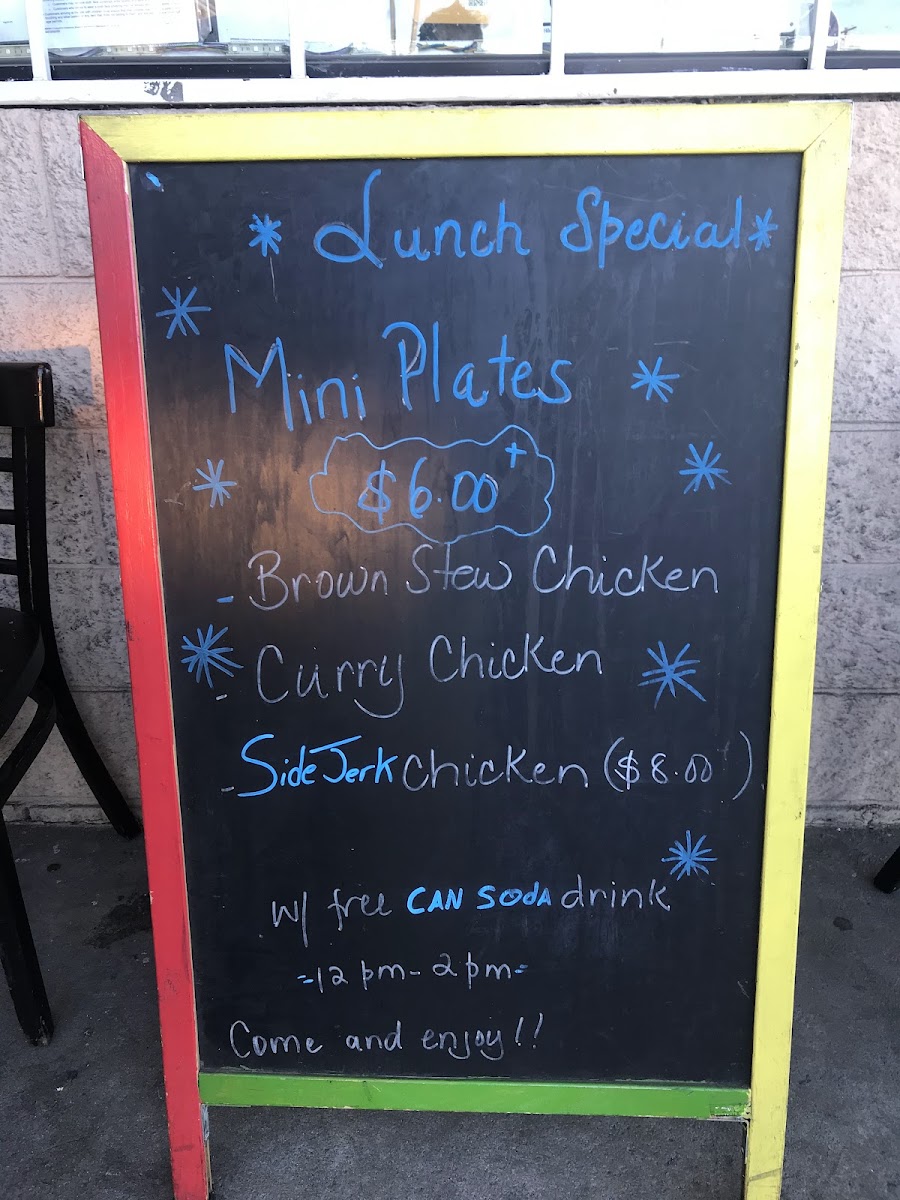 * Lunch Special *
Mini Plates
$6.00+
- Brown Stew Chicken
- Curry Chicken
- Side Jerk chicken ($8.00)
w/ free CAN SODA drink
-12 pm - 2 pm-
Come and enjoy!!